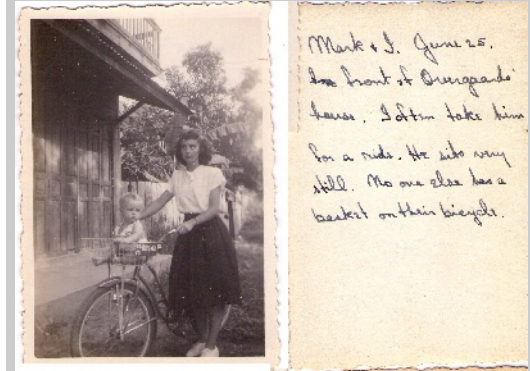 Mark & I. June 25.
In front of Overgaards'
house. I often take him
for a ride. He sits very
still. No one else has a
basket on their bicycle.